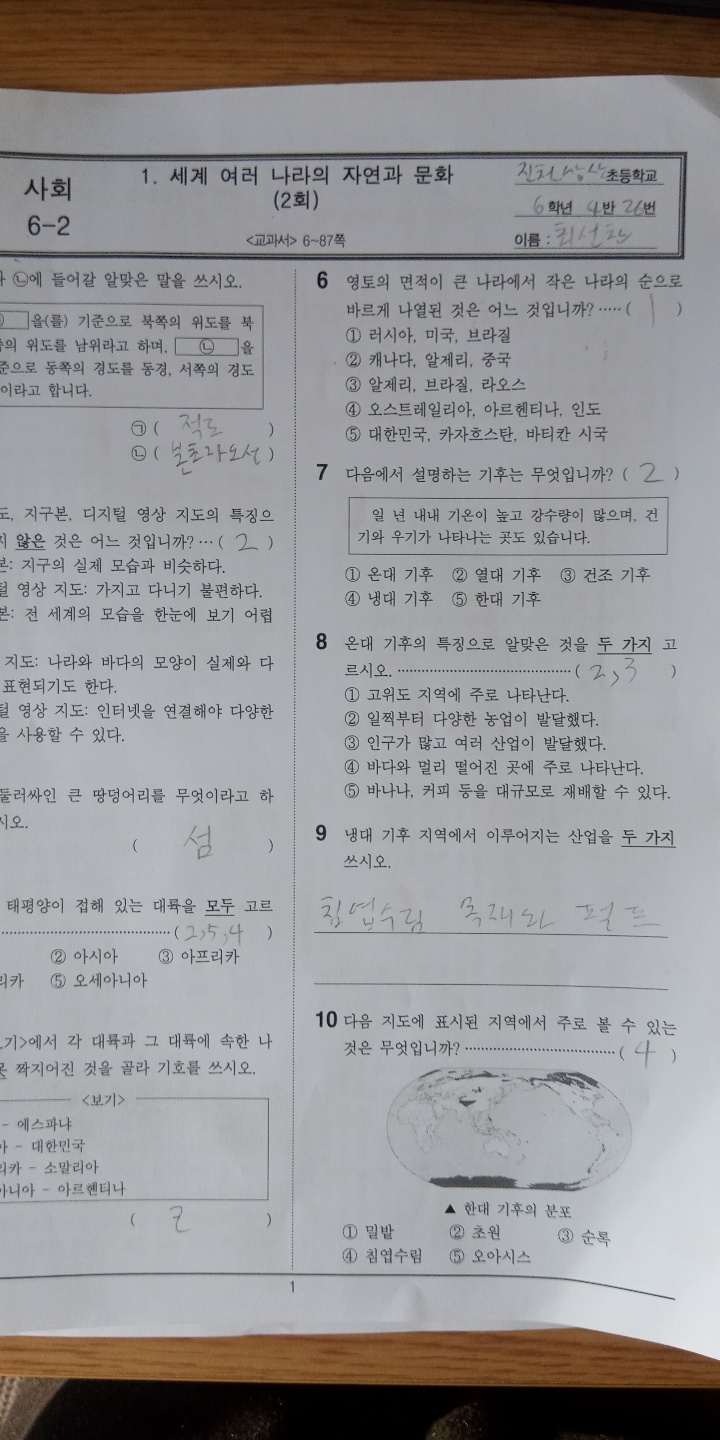 사회
6-2
1. 세계 여러 나라의 자연과 문화
(2회)
<교과서> 6~87쪽
초등학교
6학년 4반 26번
이름 :
㉡에 들어갈 알맞은 말을 쓰시오.
을(를) 기준으로 북쪽의 위도를 북
의 위도를 남위라고 하며, ㉡ 을
준으로 동쪽의 경도를 동경, 서쪽의 경도
이라고 합니다.
㉠ ( 적도 )
㉡ ( 본초자오선 )
도, 지구본, 디지털 영상 지도의 특징으
지 않은 것은 어느 것입니까? … ( 2 )
본: 지구의 실제 모습과 비슷하다.
털 영상 지도: 가지고 다니기 불편하다.
본: 전 세계의 모습을 한눈에 보기 어렵
지도: 나라와 바다의 모양이 실제와 다
표현되기도 한다.
털 영상 지도: 인터넷을 연결해야 다양한
을 사용할 수 있다.
둘러싸인 큰 땅덩어리를 무엇이라고 하
시오.
( 섬 )
태평양이 접해 있는 대륙을 모두 고르
( 2, 5, 4 )
② 아시아 ③ 아프리카
리카 ⑤ 오세아니아
기>에서 각 대륙과 그 대륙에 속한 나
못 짝지어진 것을 골라 기호를 쓰시오.
<보기>
- 에스파냐
아 - 대한민국
리카 - 소말리아
아니아 - 아르헨티나
( ㄹ )
6 영토의 면적이 큰 나라에서 작은 나라의 순으로
바르게 나열된 것은 어느 것입니까? ····· ( 1 )
① 러시아, 미국, 브라질
② 캐나다, 알제리, 중국
③ 알제리, 브라질, 라오스
④ 오스트레일리아, 아르헨티나, 인도
⑤ 대한민국, 카자흐스탄, 바티칸 시국
7 다음에서 설명하는 기후는 무엇입니까? ( 2 )
일 년 내내 기온이 높고 강수량이 많으며, 건
기와 우기가 나타나는 곳도 있습니다.
① 온대 기후 ② 열대 기후 ③ 건조 기후
④ 냉대 기후 ⑤ 한대 기후
8 온대 기후의 특징으로 알맞은 것을 두 가지 고
르시오. ····· ( 2, 3 )
① 고위도 지역에 주로 나타난다.
② 일찍부터 다양한 농업이 발달했다.
③ 인구가 많고 여러 산업이 발달했다.
④ 바다와 멀리 떨어진 곳에 주로 나타난다.
⑤ 바나나, 커피 등을 대규모로 재배할 수 있다.
9 냉대 기후 지역에서 이루어지는 산업을 두 가지
쓰시오.
침엽수림 목재와 펄프
10 다음 지도에 표시된 지역에서 주로 볼 수 있는
것은 무엇입니까? ····· ( 4 )
▲ 한대 기후의 분포
① 밀밭 ② 초원 ③ 순록
④ 침엽수림 ⑤ 오아시스
1